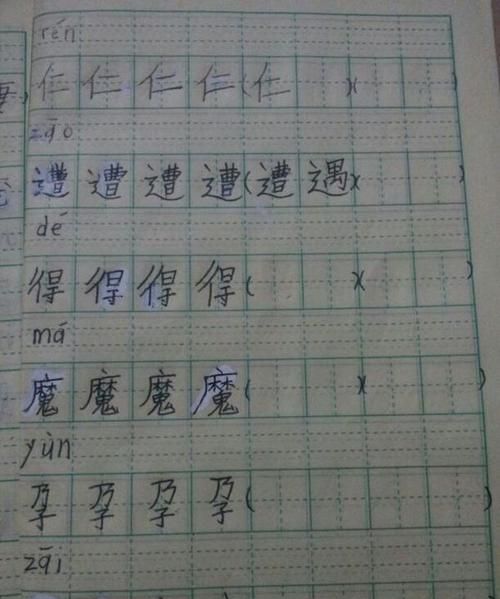 rén
仁 仁 仁 仁 (仁 )( )
zāo
遭 遭 遭 遭 (遭 遇)( )
dé
得 得 得 得 ( )( )
má
魔 魔 魔 魔 ( )( )
yùn
孕 孕 孕 孕 ( )
zāi